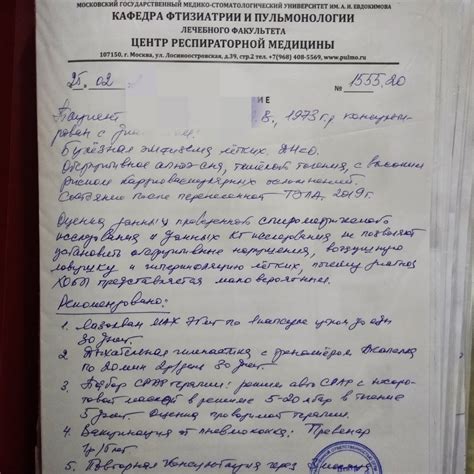 МОСКОВСКИЙ ГОСУДАРСТВЕННЫЙ МЕДИКО-СТОМАТОЛОГИЧЕСКИЙ УНИВЕРСИТЕТ ИМ. А. И. ЕВДОКИМОВА
КАФЕДРА ФТИЗИАТРИИ И ПУЛЬМОНОЛОГИИ
ЛЕЧЕБНОГО ФАКУЛЬТЕТА
ЦЕНТР РЕСПИРАТОРНОЙ МЕДИЦИНЫ
107150, г. Москва, ул. Лосиноостровская, д.39, стр.2 тел. +7(968) 408-5569, www.pulmo.ru
25 02 № 1555.20
ИЕ
Пациент В., 1973 г.р. консультирован с диагнозом:
Буллезная эмфизема лёгких. ДН 0.
Обструктивное апноэ сна, тяжёлой течения, с высоким
риском кардиоваскулярных осложнений.
Состояние после перенесенной ТЭЛА, 2019г.
Оценка данных проведенной спирометрического
исследования и данных КТ исследования не позволяют
установить обструктивные нарушения, воздушную
ловушку и гиперинфляцию лёгких, почему диагноз
ХОБЛ представляется маловероятным.
Рекомендовано:
1. Лазолван МАХ 75мг по 1 капсуле утром до еды
30 дней.
2. Дыхательная гимнастика с тренажёром
по 20 мин 2 р/день 30 дней.
3. Подбор CPAP терапии: режим авто CPAP с носоротовой
маской в режиме 5-20 мбар в течение
5 дней. Оценка проводимой терапии.
4. Вакцинация от пневмококка: Превенар
5. Повторная консультация через